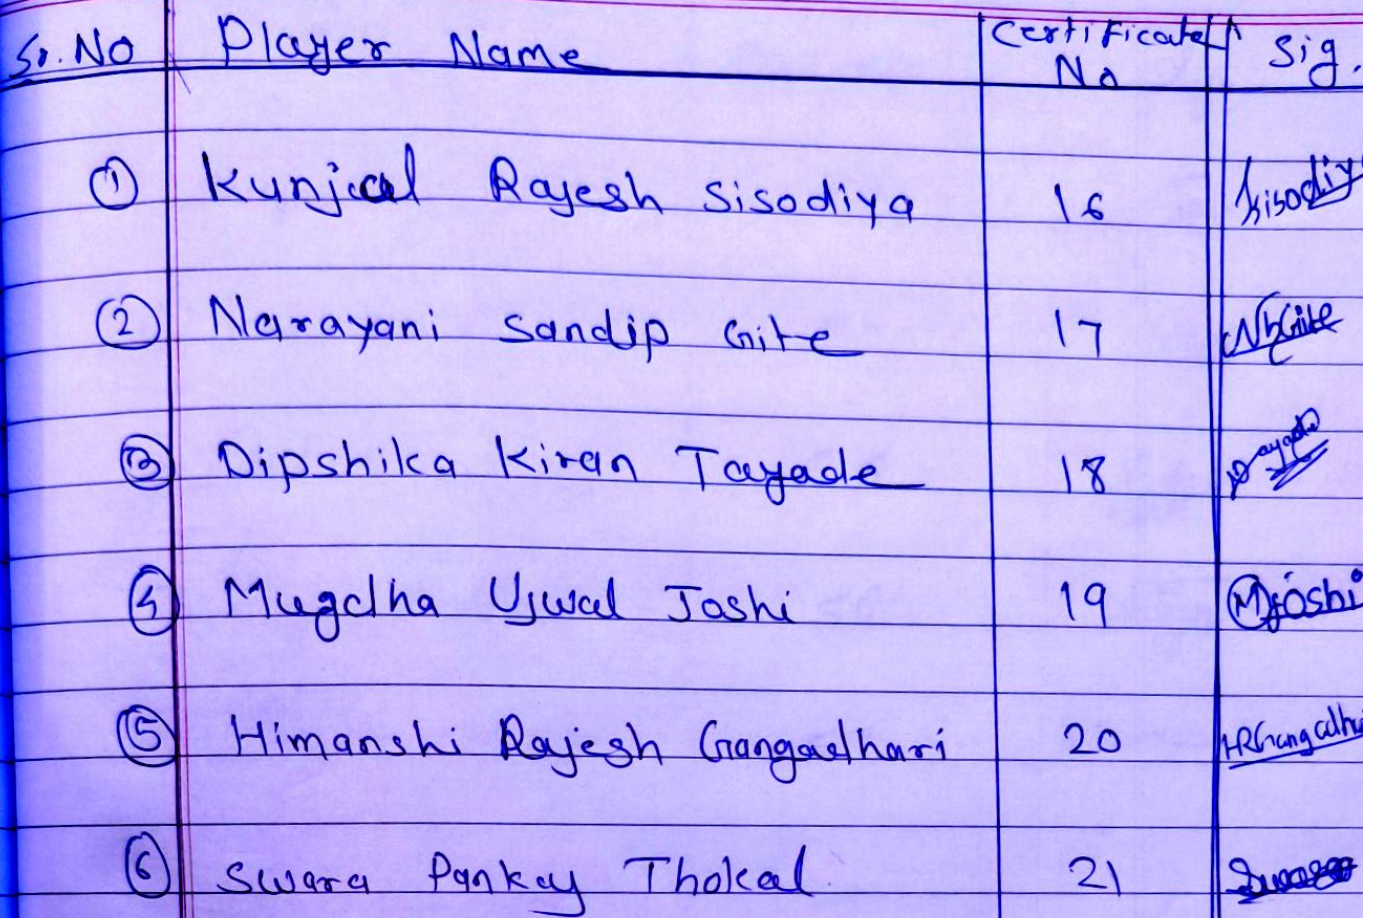 Sr. No Player Name Certificate No Sig.
① Kunjal Rajesh Sisodiya 16 ksisodiy
② Narayani Sandip Gite 17 NSGite
③ Dipshika Kiran Tayade 18
④ Mugdha Ujwal Joshi 19 MJoshi
⑤ Himanshi Rajesh Gangadhari 20 HRGangadha
⑥ Swara Pankaj Thokal 21